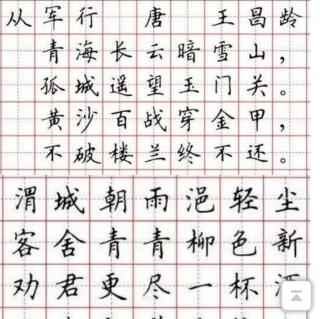 从军行 唐 王昌龄
青海长云暗雪山，
孤城遥望玉门关。
黄沙百战穿金甲，
不破楼兰终不还。
渭城朝雨浥轻尘
客舍青青柳色新
劝君更尽一杯酒